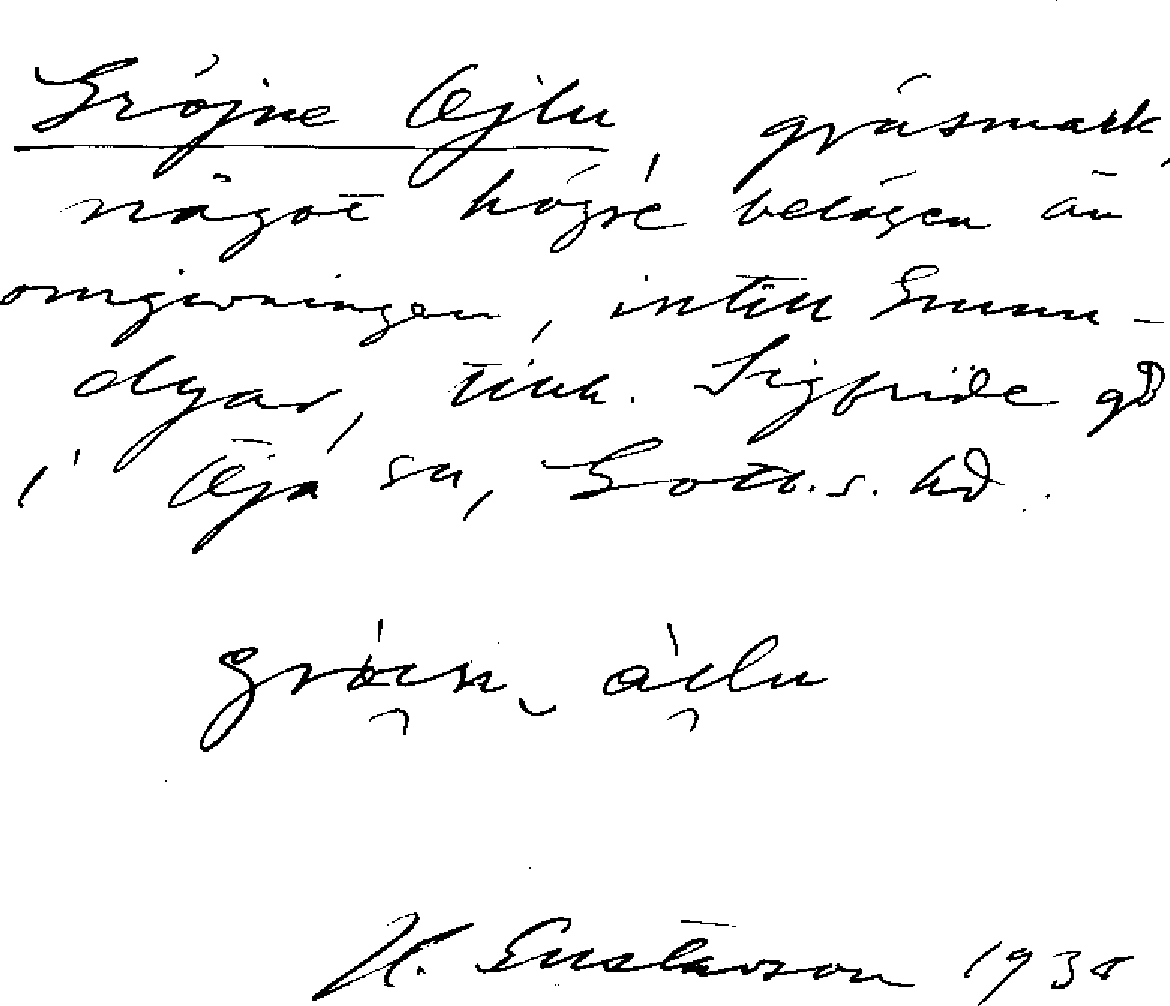 Gröjne Öjlu gräsmark,
något högre belägen än
omgivningen, intill Snum-
dyar, tillh. Sigfride gd
i Öja sn, Gotl.s. hd.
H. Gustavson 1938